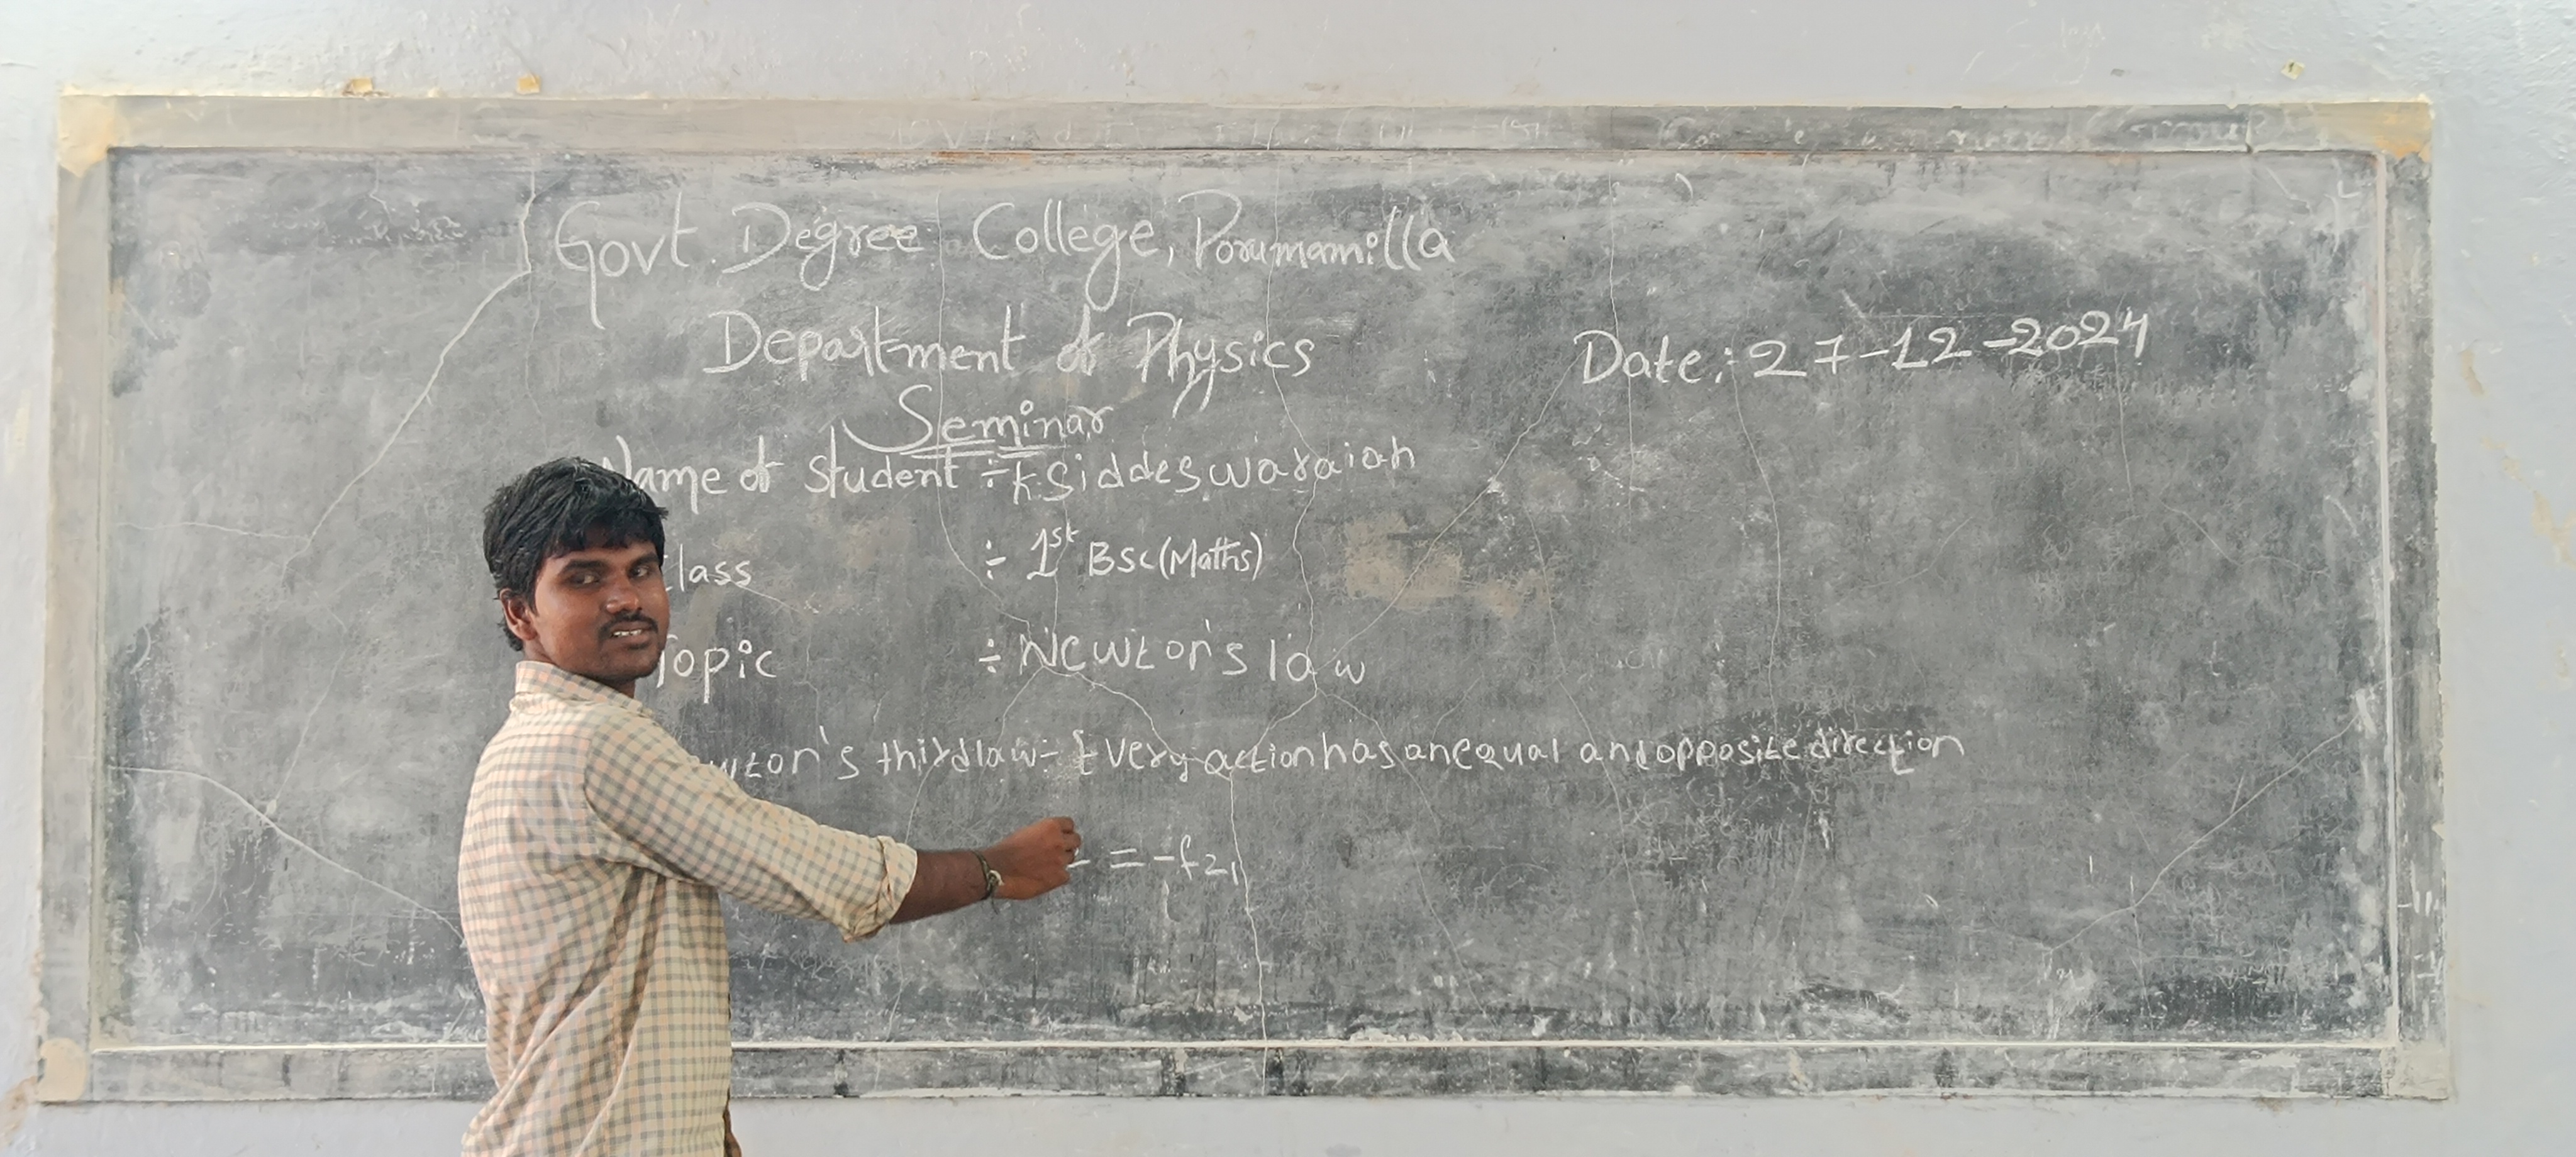 Govt. Degree College, Porumamilla
Department of Physics
Date: 27-12-2024
Seminar
Name of student ÷ k. Siddeswaraiah
Class ÷ 1st Bsc (Maths)
Topic ÷ Newton's law
wton's third law ÷ Every action has an equal and opposite direction
= -f21